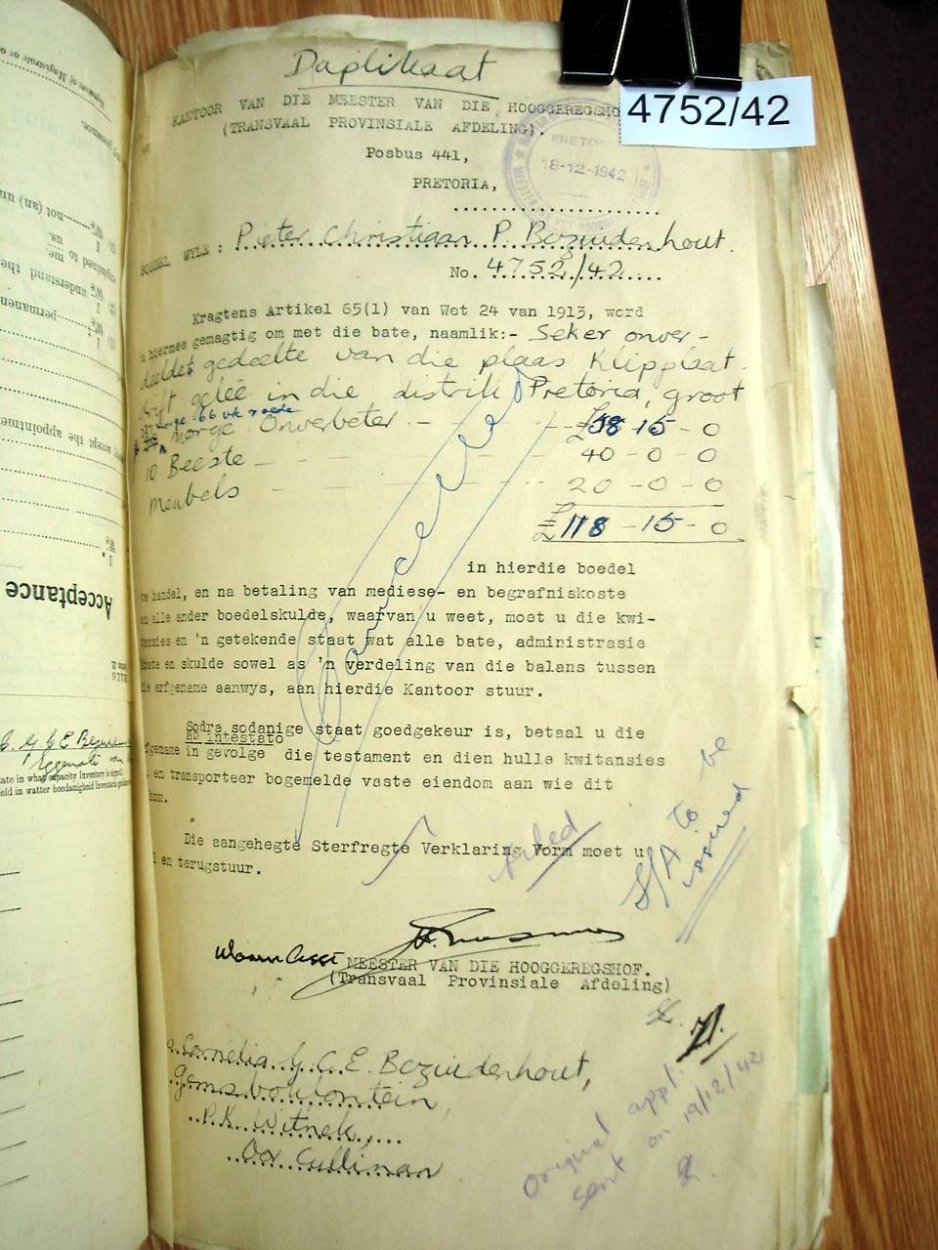 Duplikaat
4752/42
KANTOOR VAN DIE MEESTER VAN DIE HOOGGEREGSHO
(TRANSVAAL PROVINSIALE AFDELING).
Posbus 441,
PRETORIA,
PRETOR
18-12-1942
BOEDEL WYLE: Pieter Christiaan P. Bezuidenhout.
No. 4752/42
Kragtens Artikel 65(1) van Wet 24 van 1913, word
u hiermee gemagtig om met die bate, naamlik:- Seker onver-
deelde gedeelte van die plaas Klipplaat
drift geleë in die distrik Pretoria, groot
morge 66 vk roede
morge Onverbeter - £58-15-0
10 Beeste 40-0-0
Meubels 20-0-0
£118-15-0
Cancelled
in hierdie boedel
te handel, en na betaling van mediese- en begrafniskoste
en alle ander boedelskulde, waarvan u weet, moet u die kwi-
tensies en 'n getekende staat wat alle bate, administrasie
koste en skulde sowel as 'n verdeling van die balans tussen
die erfgename aanwys, aan hierdie Kantoor stuur.
Sodra sodanige staat goedgekeur is, betaal u die
ab intestato
erfgename in gevolge die testament en dien hulle kwitansies
en transporteer bogemelde vaste eiendom aan wie dit
kom.
Die aangehegte Sterfregte Verklaring Vorm moet u
en terugstuur.
filed
S/A to be
issued
Waarn Asst MEESTER VAN DIE HOOGGEREGSHOF.
(Transvaal Provinsiale Afdeling)
Cornelia G. C. E. Bezuidenhout,
Gemsbokfontein,
P.K. Witnek,
Oor Cullinan
Original appt.
sent on 19/12/42
Acceptance
accept the appointme
permanen
understand the
explained to me
us.
not (an) un
C. G. C. E. Bezuiden
Eggenote van
tate in what capacity Inventory is signed)
eld in watter hoedanigheid Inventaris geteken